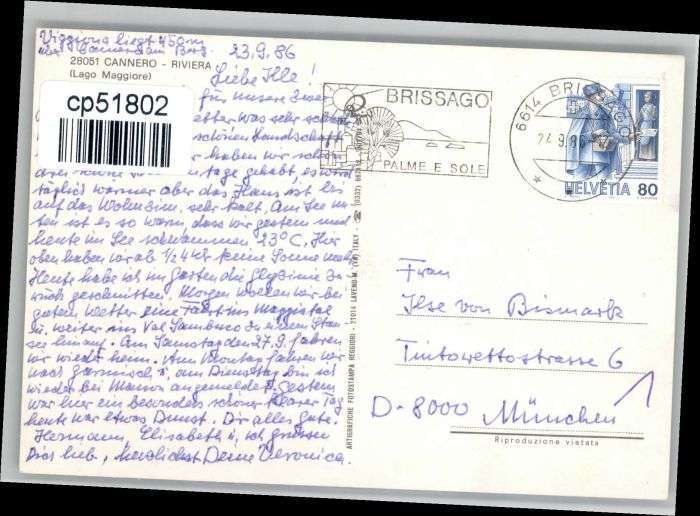 Viggiona liegt 450 m
über Cannero am Berg.
28051 CANNERO - RIVIERA
(Lago Maggiore)
23.9.86
Liebe Ille!
für unsere
cp51802
war sehr
schönen Landschaft
haben wir schon
tage gehabt, es wird
täglich wärmer aber das Haus ist bis
auf das Wohnzim. sehr kalt. Am See un-
ten ist es so warm, dass wir gestern und
heute im See schwammen, 23°C. Hier
oben haben wir ab 1/2 4 Uhr keine Sonne mehr.
Heute habe ich im Garten die Glyzinie zu-
rück geschnitten. Morgen wollen wir bei
gutem Wetter eine Fahrt ins Maggiatal
u. weiter ins Val Sambuco zu einem Stau-
see hinauf. Am Samstag den 27.9. fahren
wir wieder heim. Am Montag fahren wir
nach Garmisch u. am Dienstag bin ich
wieder bei angemeldet. Gestern
war hier ein besonders schöner klarer Tag
heute war etwas Dunst. Dir alles Gute.
Hermann, Elisabeth u. ich grüssen
Dich lieb, herzlichst Deine Veronica.
ARTIGRAFICHE FOTOSTAMPA REGGIORI - 21014 LAVENO-M. (VA) ITALY
BRISSAGO
PALME E SOLE
6614 BRISSAGO
24.9.86
HELVETIA 80
Frau
Ilse von Bismark
Tintorettostrasse 6
D-8000 München
Riproduzione vietata